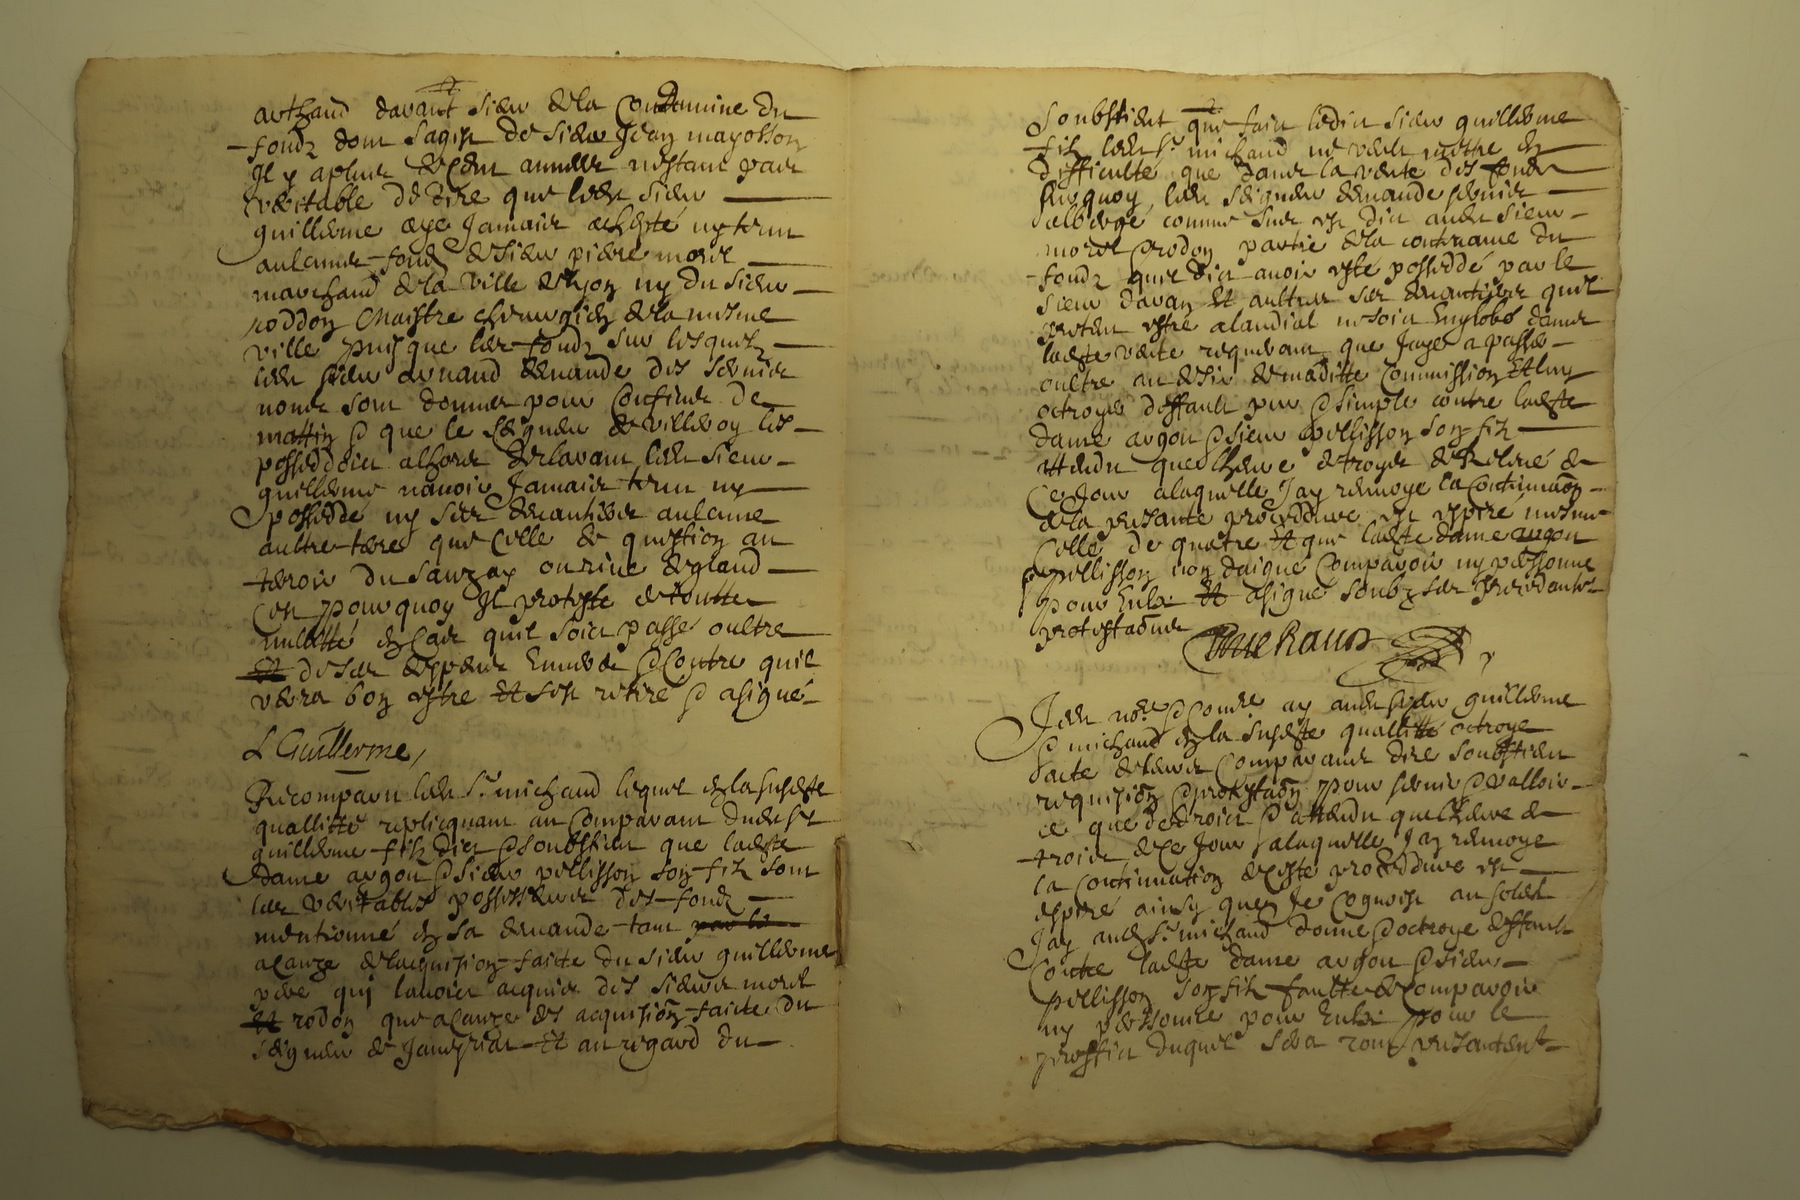 arthaud davant sieur de la Condamine du
fondz dont sagist de sieur Jean mayosson
Il y a plus de Cent annees nestant pas
veritable de dire que ledt sieur
guillerme aye Jamais achepté ny tenu
aulcuns fondz de sieur pierre morel
marchand de la ville de lyon ny du sieur
roddon Maistre chirurgien de la mesme
ville puis que les fondz sur lesquelz
ledt sieur demande des servis
nous sont donnes pour Confins de
mattin & que le seigneur de villeroy les
possedoit alhors declarant ledt sieur
guillerme navoir Jamais tenu ny
possedé ny ses devantiers aulcune
aultre terre que Celle de question au
terroir du sauzay ou rive de gland
Cest pourquoy Il proteste de toutte
nullitté en Cas quil soit passé oultre
Et de ses despens envers & Contre quil
verra bon estre Et sest retiré & asigné
L Guillerme
Recomparu ledt Sr michaud lequel en la susdte
quallitté replicquant au Comparant dudt Sr
guillerme filz dict & soubstient que ladte
dame argou & sieur pellisson son filz sont
les veritables possesseurs des fondz
mentionné en sa demande tant par le
a Cauze de lacquision faicte du sieur guillerme
pere quy lavoit acquis des sieurs morel
Et rodon que a Cauze des acquision faictes du
seigneur de Et au regard du
Soubstient que fait ledit sieur guillerme
filz ledt Sr michaud ne veult mettre en
difficulté que dans la vente des fondz
sur quoy ledt seigneur demande servis
comme sus est dit audt sieur
morel & rodon partie de la contenance du
fondz quil dit avoir esté possedé par le
sieur davan Et aultres ses devantiers quil
pretend estre alaudial ne soit englobé dans
ladte vente requerant que Jaye a passer
oultre au desir de maditte Commission Et luy
octroyer deffault pur & simple contre ladte
dame argou & sieur pellisson son filz
attendu que lheure de troys de Relevé de
Ce Jour a laquelle Jay renvoyé la Continuaon
de la presante proceddure est expiré mesme
Celle de quatre Et que ladte dame argou
& pellisson non daigné Comparoir ny personne
pour Eulx Et asigné soubz ses precedantes
protestaons
Je dt nore & Comre ay audt sieur guillerme
& michaud en la susdte quallitté octroyé
acte de leurs Comparants dire soubstient
requision & protestaon pour servir & valloir
ce que de droict & attendu que lheure de
trois de Ce Jour a laquelle Jay renvoyé
la Continuation de Ceste proceddure est
expiré ainsy que Je Cognoist au soleil
Jay audt Sr michaud donné & octroyé deffault
Contre ladte dame argou & sieur
pellisson son filz faultte de Comparoir
ny personne pour Eulx pour le
proffit duquel sera tout presantent